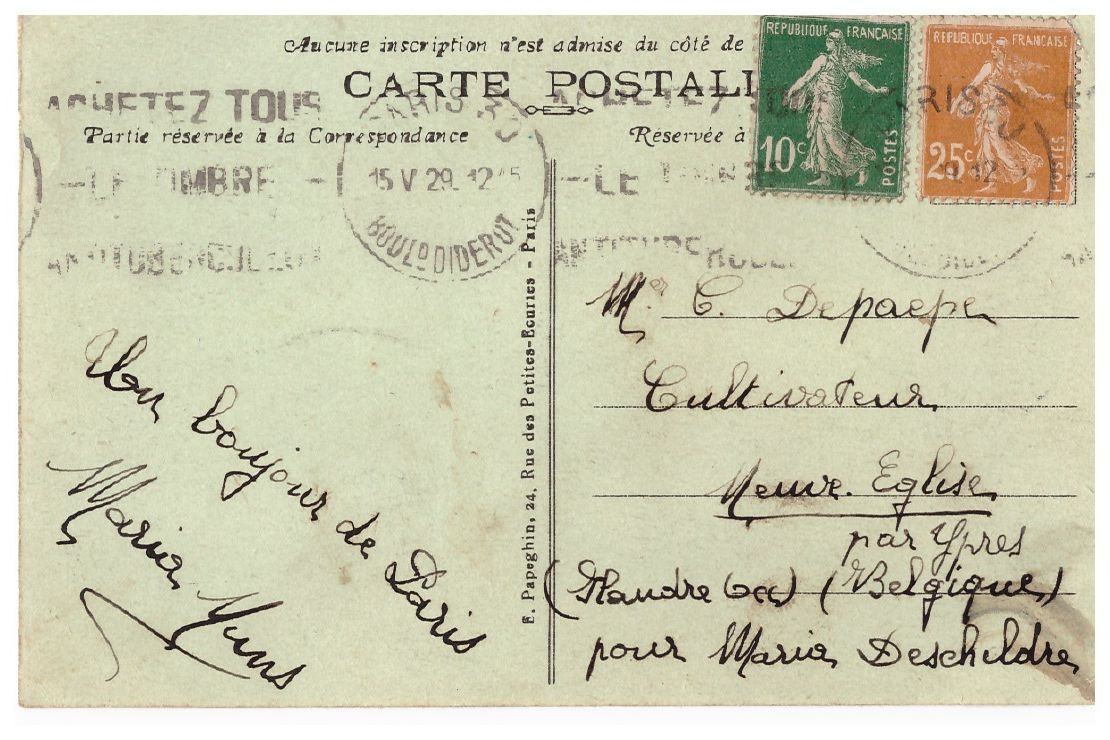 Aucune inscription n'est admise du côté de
CARTE POSTAL
Partie réservée à la Correspondance
Réservée à
REPUBLIQUE FRANÇAISE
10c
POSTES
REPUBLIQUE FRANÇAISE
25c
POSTES
ACHETEZ TOUS
— LE TIMBRE —
ANTITUBERCULEUX
PARIS
15 V 29 12
BOULD DIDEROT
— LE
E. Papeghin, 24, Rue des Petites-Ecuries - Paris
Un bonjour de Paris
Maria Muns
Mer C. Depaepe
Cultivateur
Neuve. Eglise
par Ypres
(Flandre occ) (Belgique)
pour Maria Deschildre